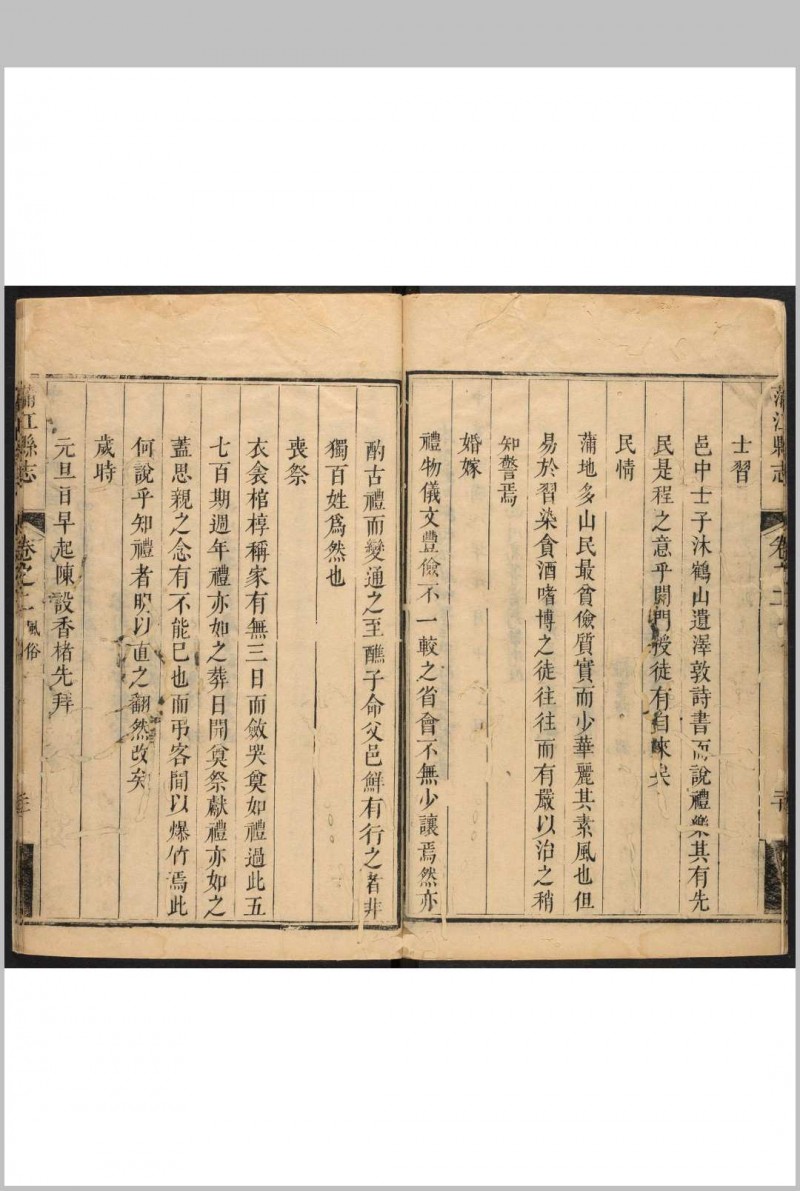 蒲江縣志
卷之二
士習
邑中士子沐鶴山遺澤敦詩書而說禮樂其有先
民是程之意乎闢門授徒有自來矣
民情
蒲地多山民最貧儉質實而少華麗其素風也但
易於習染貪酒嗜博之徒往往而有嚴以治之稍
知警焉
婚嫁
禮物儀文豐儉不一較之省會不無少讓焉然亦
酌古禮而變通之至醮子命父邑鮮有行之者非
獨百姓爲然也
喪祭
衣衾棺椁稱家有無三日而斂哭奠如禮過此五
七百期週年禮亦如之葬日開奠祭獻禮亦如之
蓋思親之念有不能已也而弔客間以爆竹焉此
何說乎知禮者明以直之翻然改矣
歲時
元旦日早起陳設香楮先拜
蒲江縣志
卷之二
風俗